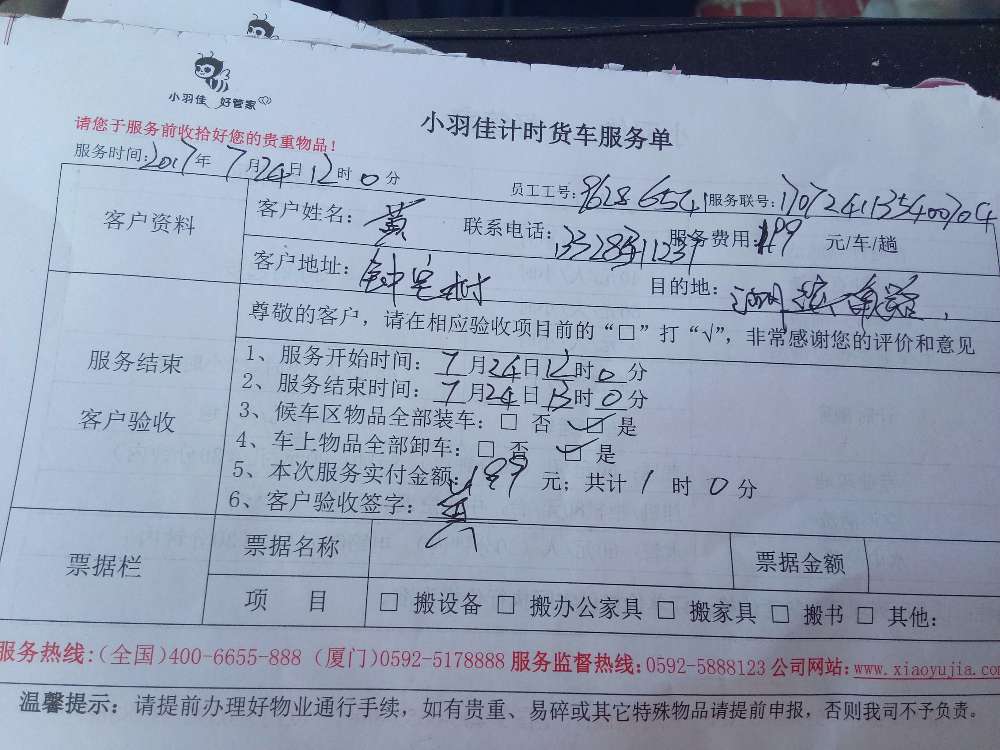 小羽佳 好管家
小羽佳计时货车服务单
请您于服务前收拾好您的贵重物品！
服务时间:2017年 7月24日12时0分
员工工号: 服务联号:
客户资料 客户姓名：黄 联系电话: 服务费用:199 元/车/趟
客户地址： 目的地：
服务结束 客户验收
尊敬的客户，请在相应验收项目前的“□”打“√”，非常感谢您的评价和意见
1、服务开始时间：7月24日12时0分
2、服务结束时间：7月24日13时0分
3、候车区物品全部装车：□ 否 ☑是
4、车上物品全部卸车：□ 否 ☑是
5、本次服务实付金额:199 元；共计1时0分
6、客户验收签字：黄
票据栏 票据名称 票据金额
项 目 □ 搬设备 □ 搬办公家具 □ 搬家具 □ 搬书 □ 其他:
服务热线:(全国)400-6655-888 (厦门)0592-5178888 服务监督热线:0592-5888123 公司网站:www.xiaoyujia.co
温馨提示：请提前办理好物业通行手续，如有贵重、易碎或其它特殊物品请提前申报，否则我司不予负责。